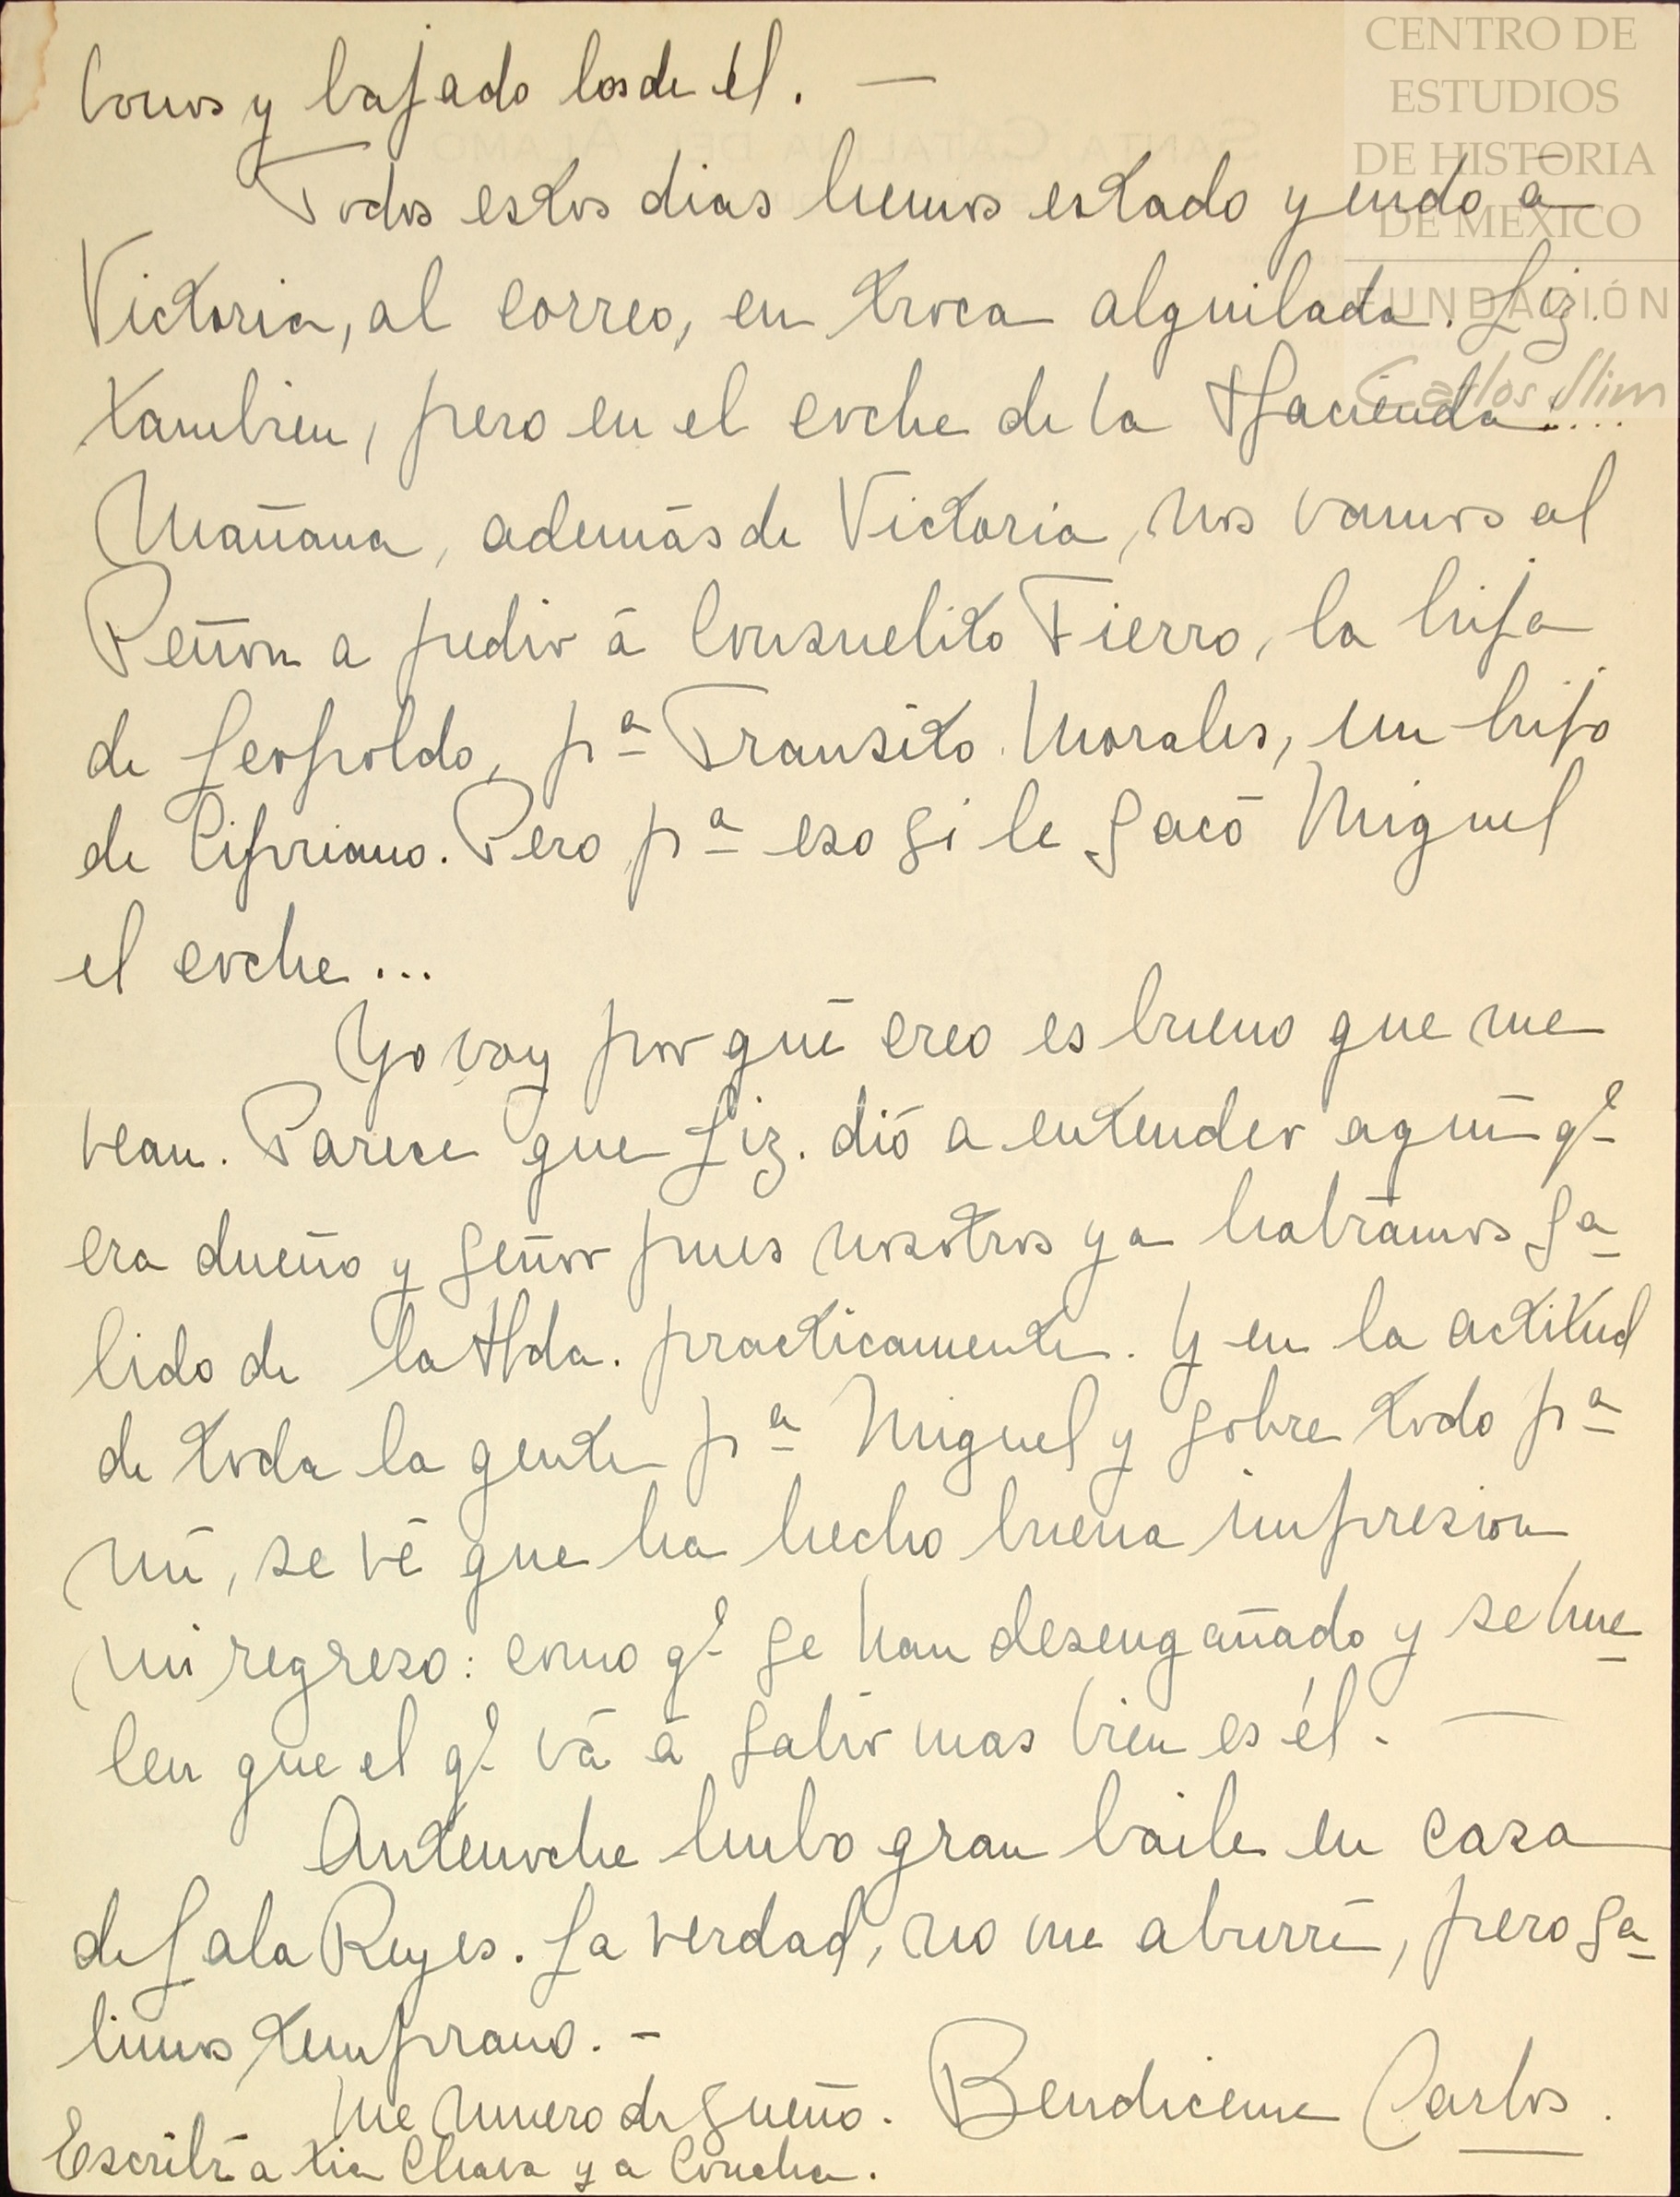 bonos y bajado los de él. —
Todos estos dias hemos estado yendo á
Victoria, al correo, en troca alquilada. Liz.
tambien, pero en el coche de la Hacienda....
Mañana, además de Victoria, nos vamos al
Peñon a pedir á Consuelito Fierro, la hija
de Leopoldo, pª Transito Morales, un hijo
de Cipriano. Pero pª eso si le sacó Miguel
el coche...
Yo voy por qué creo es bueno que me
vean. Parece que Liz. dió a entender aquí qe
era dueño y señor pues nosotros ya habíamos sa-
lido de la Hda. practicamente. Y en la actitud
de toda la gente pª Miguel y sobre todo pª
mí, se vé que ha hecho buena impresion
mi regreso: como qe se han desengañado y se hue-
len que el qe vá á salir mas bien es él. —
Antenoche hubo gran baile en casa
de Lala Reyes. La verdad, no me aburrí, pero sa-
limos temprano. —
Me muero de sueño. Bendiceme Carlos.
Escribí a tia Chava y a Concha.
CENTRO DE
ESTUDIOS
DE HISTORIA
DE MÉXICO
FUNDACIÓN
Carlos Slim
SANTA CATALINA DEL ALAMO